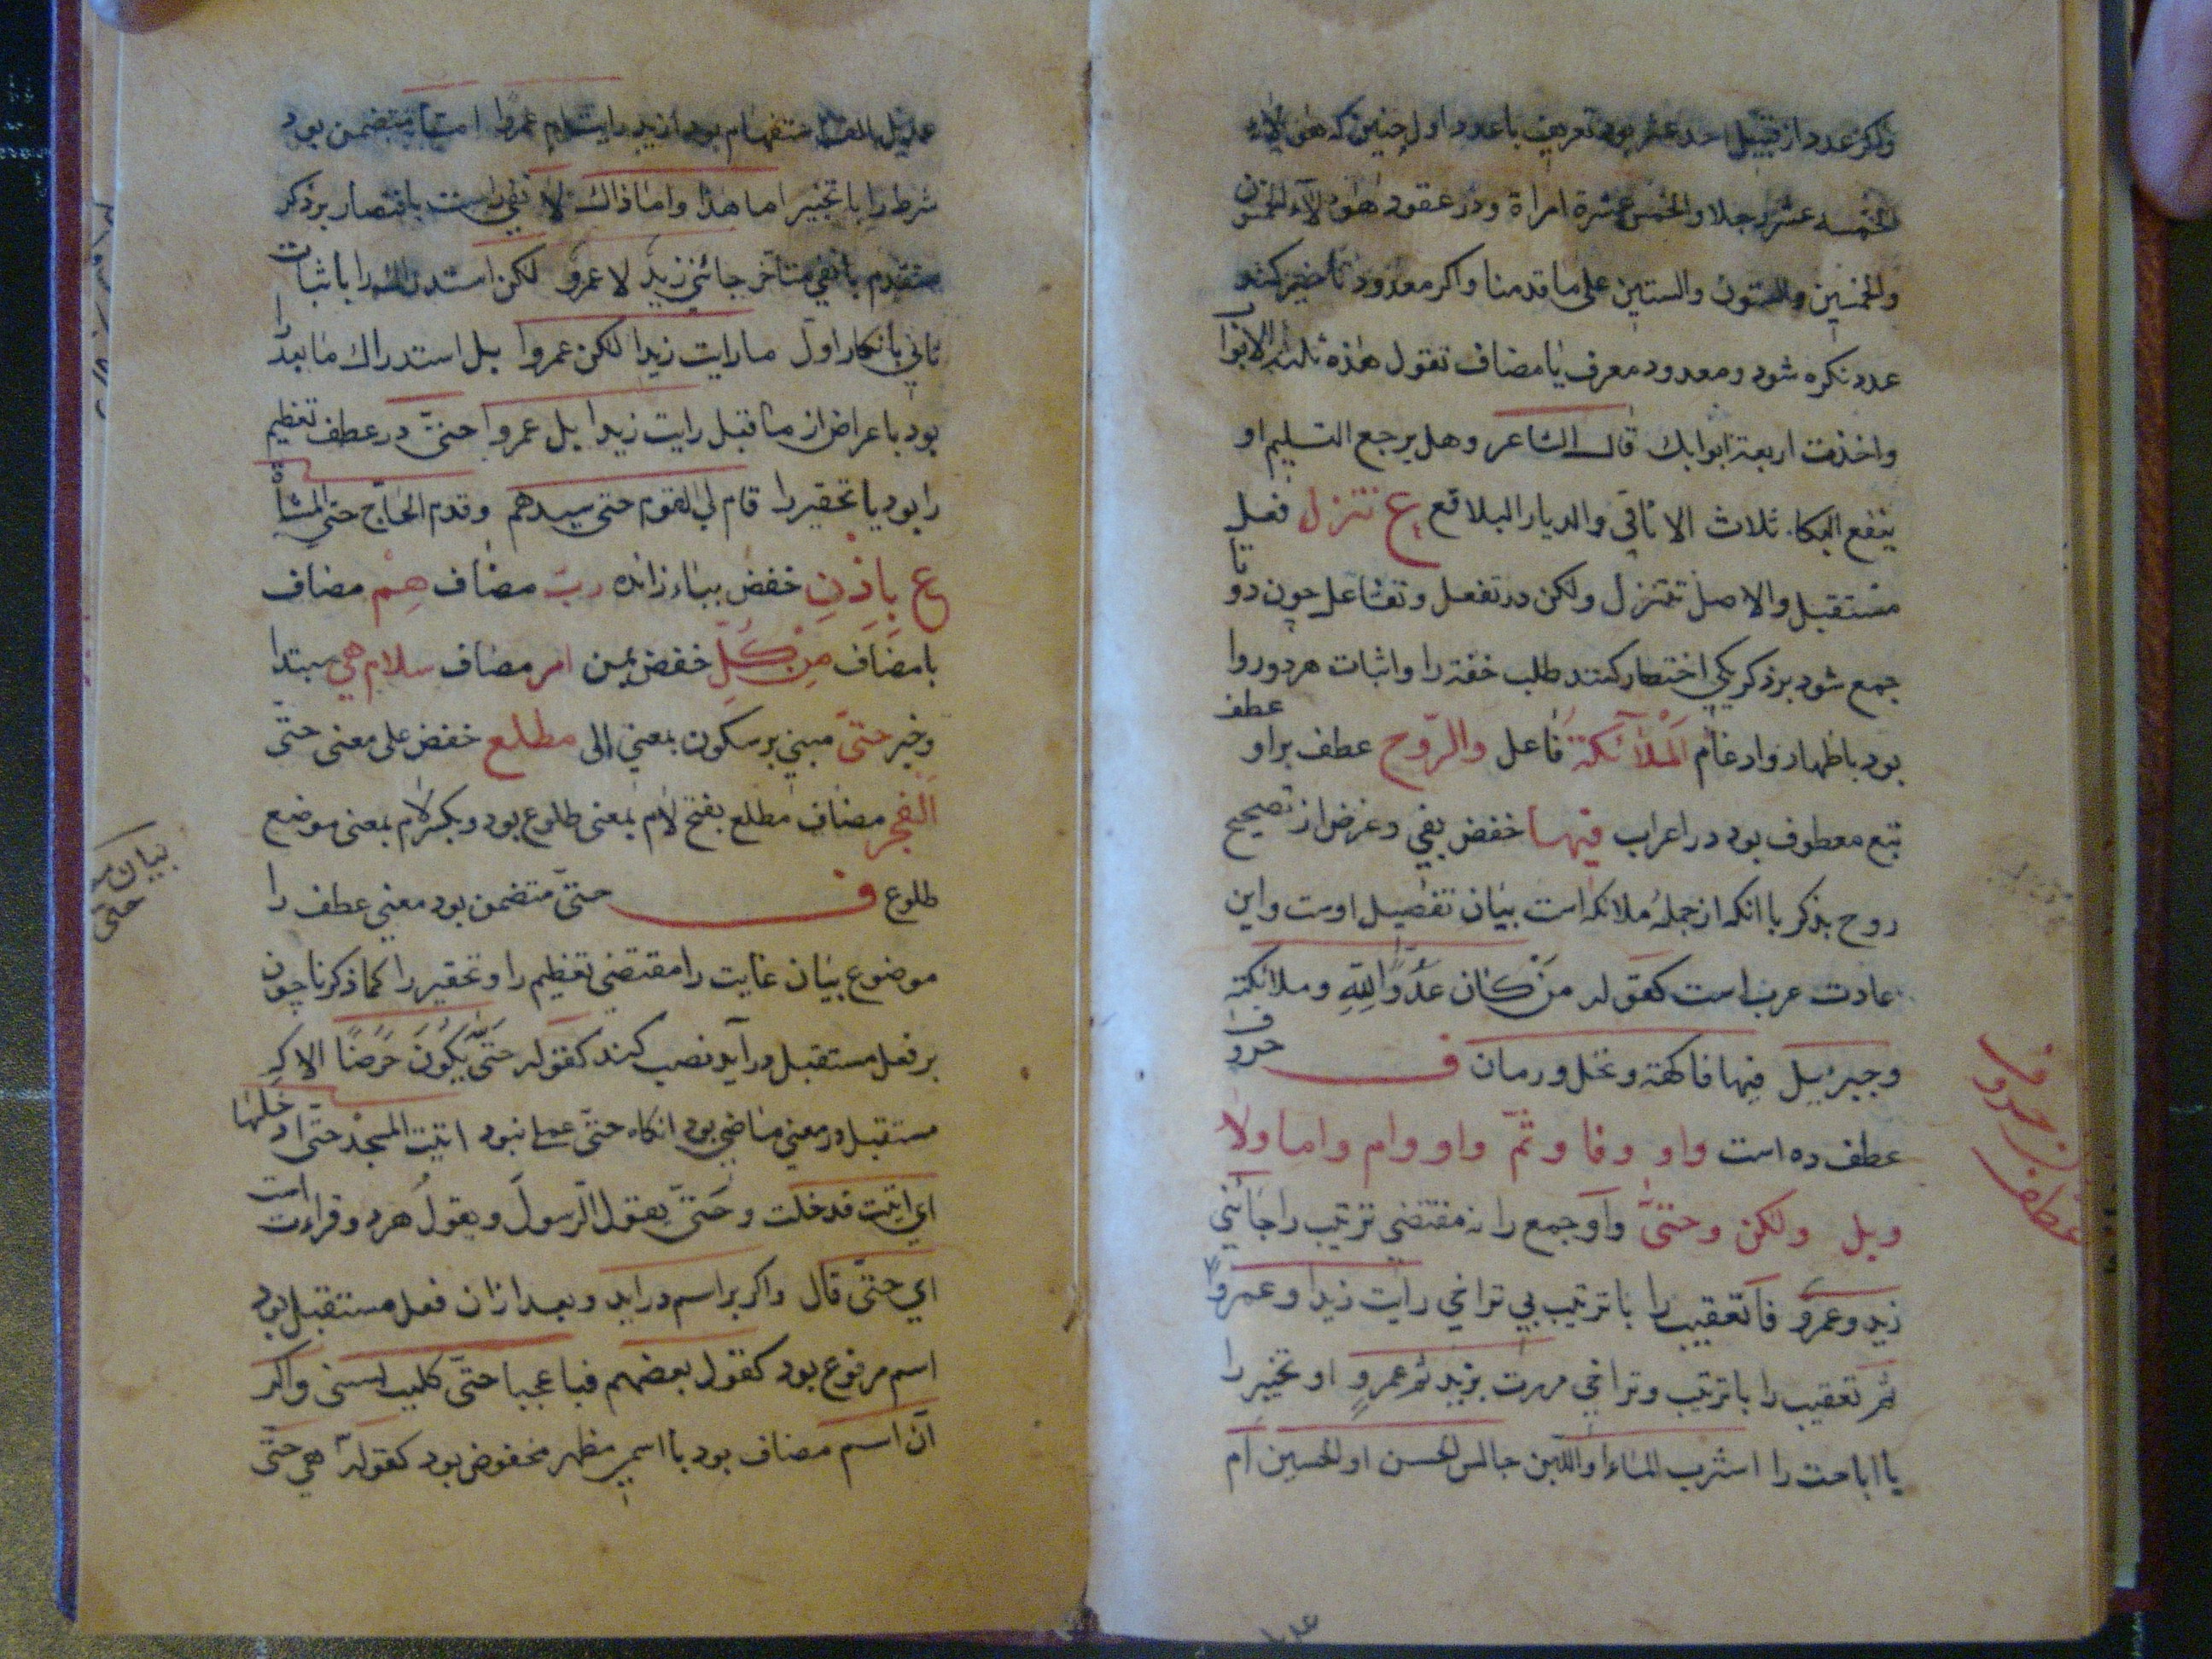 واكر عدد از قبیل احد عشر بود تعریف با عدد اول چنین که هولاء
الخمسه عشر رجلا والخمس عشرة امراة ودر عقود هولاء الخمسون
والخمسین والستون والستین علی ما قدمنا واکر معدود تاخیر کنند
عدد نکره شود ومعدود معرف یا مضاف تقول هذه ثلثة الابواب
واخذت اربعة ابوابك قال الشاعر وهل یرجع التسلیم او
ینفع البکا. ثلاث الاثافی والدیار البلاقع ع تنزل فعل
مستقبل والاصل تتنزل ولکن در تفعل وتفاعل چون دو تا
جمع شود بر ذکر یکی اختصار کنند طلب خفة را واثبات هر دو روا
بود باظهار وادغام الملآئکة فاعل والروح عطف براو عطف
تبع معطوف بود در اعراب فیها خفض بفی وغرض از تصحیح
روح بذکر با انکه از جملهٔ ملائکه است بیان تفضیل اوست واین
عادت عرب است کقوله من کان عدوا لله وملائکته
وجبرئیل فیها فاکهة ونخل ورمان ف حروف
عطف ده است واو وفا وثم واو وام واما ولا
وبل ولکن وحتی واو جمع را نه مقتضی ترتیب را جائنی
زید وعمرو فا تعقیب را با ترتیب بی تراخی رایت زیدا وعمروا
ثم تعقیب را با ترتیب وتراخی مررت بزید ثم عمرو او تخییر را
یا اباحت را اشرب الماء او اللبن جالس الحسن او الحسین ام
بیان حروف
عطف
عدیل الف استفهام بود ازید رایت ام عمروا اما متضمن بود
شرط را با تخییر اما هذا واما ذاك لا نفی راست باقتصار بر ذکر
متقدم با نفی متاخر جائنی زید لا عمرو لکن استدراك را باثبات
ثانی بانکار اول ما رایت زیدا لکن عمروا بل استدراك ما بعد را
بود باعراض از ما قبل رایت زیدا بل عمروا حتی در عطف تعظیم
را بود یا تحقیر را قام لی القوم حتی سیدهم وقدم الحاج حتی المشاة
ع باذن خفض بباء زائده رب مضاف هم مضاف
با مضاف من کل خفض بمن امر مضاف سلام هی مبتدا
وخبر حتی مبنی بر سکون بمعنی الی مطلع خفض علی معنی حتی
الفجر مضاف مطلع بفتح لام بمعنی طلوع بود وبکسر لام بمعنی موضع
طلوع ف حتی متضمن بود معنی عطف را
موضوع بیان غایت را مقتضی تعظیم را وتحقیر را کما ذکرنا چون
بر فعل مستقبل درآید نصب کند کقوله حتی یکون حرضا الا که
مستقبل در معنی ماضی بود انکاه حتی عمل نبود اتیت المسجد حتی ادخلها
ای اتیت قد خلت وحتی یقول الرسول ویقول هر دو قراءت است
ای حتی قال واکر بر اسم درآید وبعد ازان فعل مستقبل بود
اسم مرفوع بود کقول بعضهم فیا عجبا حتی کلیب تسبنی واکر
آن اسم مضاف بود با اسم مظهر مخفوض بود کقوله هی حتی
بیان
حتی